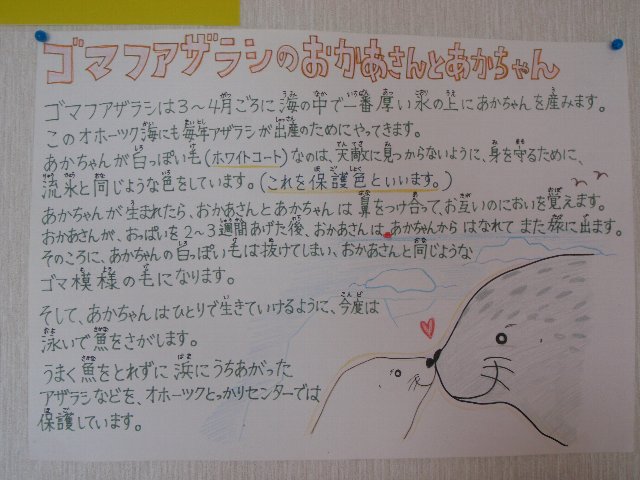 ゴマフアザラシのおかあさんとあかちゃん
ゴマフアザラシは3〜4月ごろに海の中で一番厚い氷の上にあかちゃんを産みます。
このオホーツク海にも毎年アザラシが出産のためにやってきます。
あかちゃんが白っぽい毛(ホワイトコート)なのは、天敵に見つからないように、身を守るために、
流氷と同じような色をしています。(これを保護色といいます。)
あかちゃんが生まれたら、おかあさんとあかちゃんは鼻をつけ合って、お互いのにおいを覚えます。
おかあさんが、おっぱいを2〜3週間あげた後、おかあさんは、あかちゃんからはなれてまた旅に出ます。
そのころに、あかちゃんの白っぽい毛は抜けてしまい、おかあさんと同じような
ゴマ模様の毛になります。
そして、あかちゃんはひとりで生きていけるように、今度は
泳いで魚をさがします。
うまく魚をとれずに浜にうちあがった
アザラシなどを、オホーツクとっかりセンターでは
保護しています。